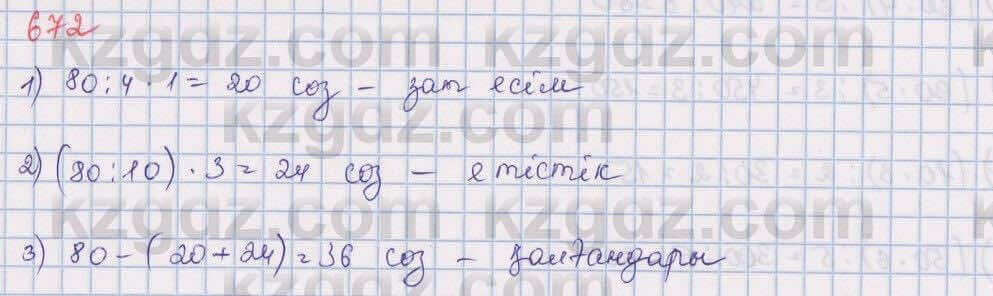 672
1) 80 : 4 · 1 = 20 соз – зат есім
2) (80 : 10) · 3 = 24 соз – етістік
3) 80 – (20 + 24) = 36 соз – қалғандары
kzgdz.com kzgdz.com
kzgdz.com
kzgdz.com kzgdz.com